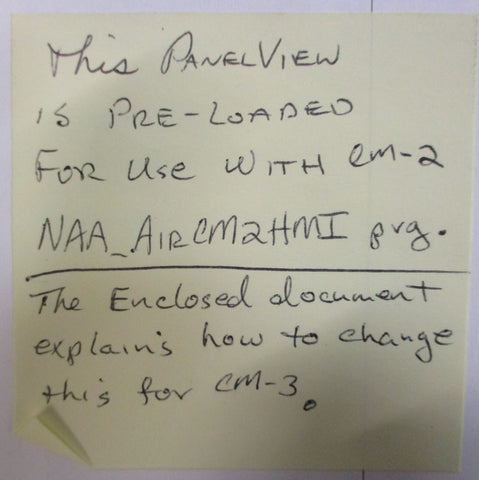 This PANELVIEW
IS PRE-LOADED
FOR Use WITH CM-2
NAA_AIRCM2HMI prg.
The Enclosed document
explains how to change
this for CM-3.